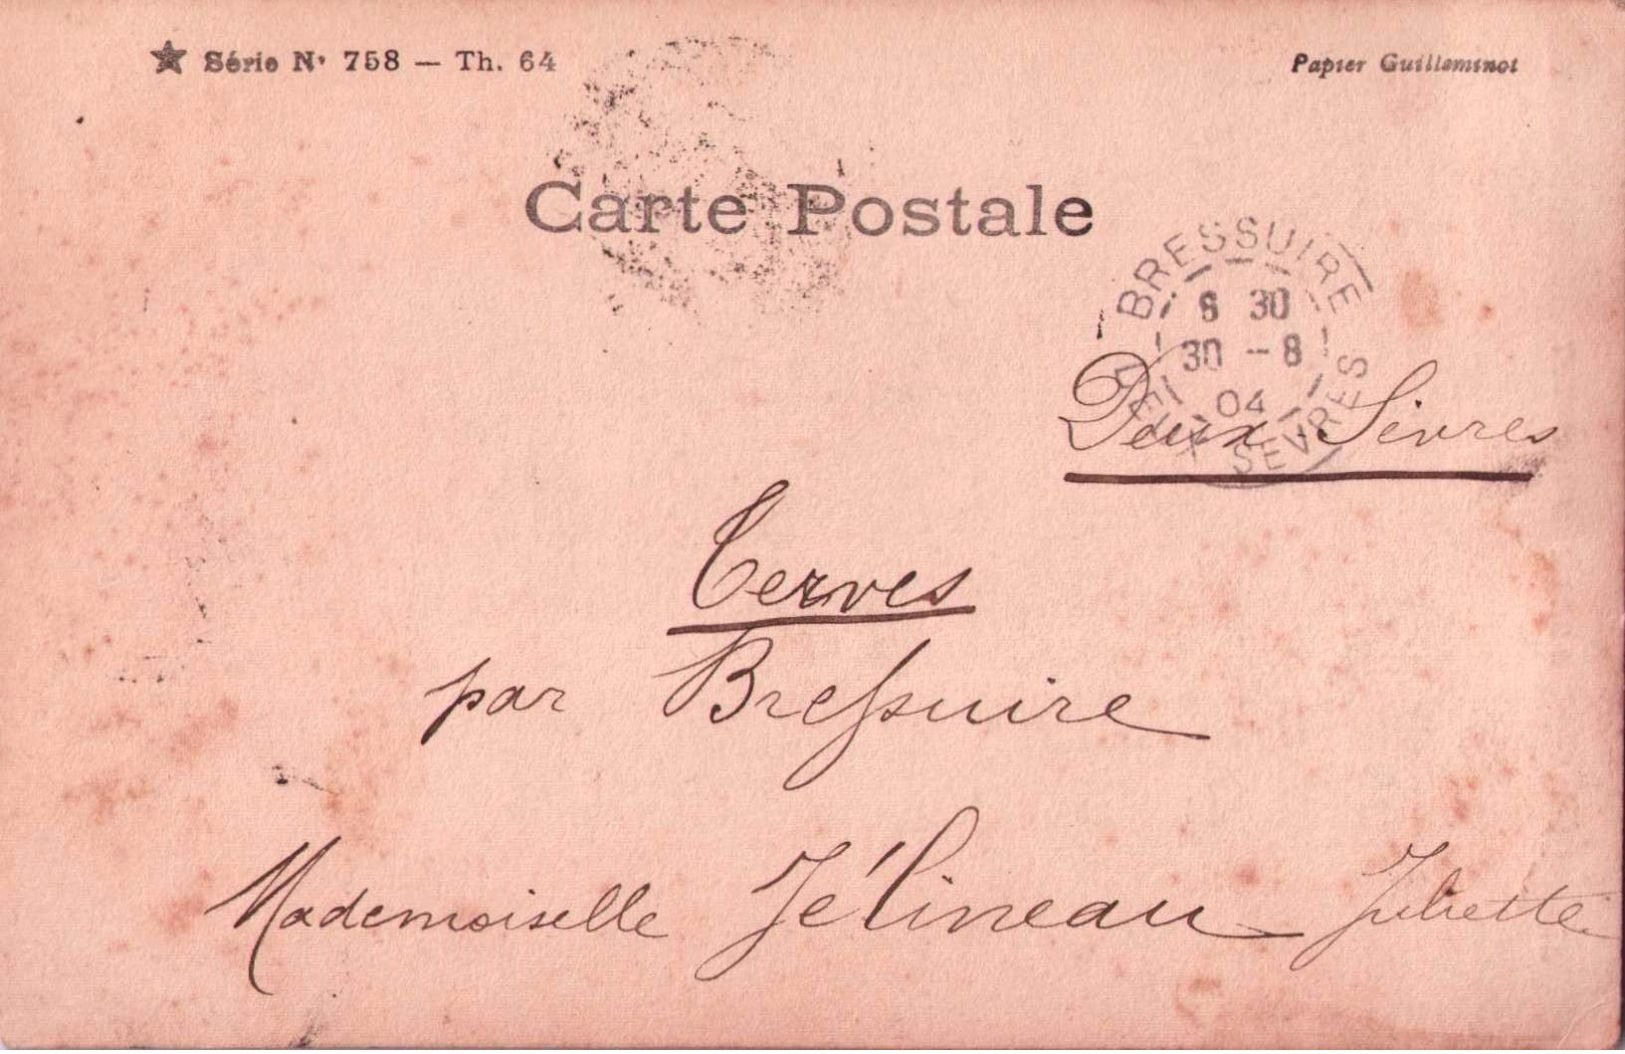 ★ Série N° 758 — Th. 64
Papier Guilleminot
Carte Postale
BRESSUIRE
8 30
30 - 8
04
DEUX SEVRES
Deux Sèvres
Terves
par Bressuire
Mademoiselle Jélineau Juliette